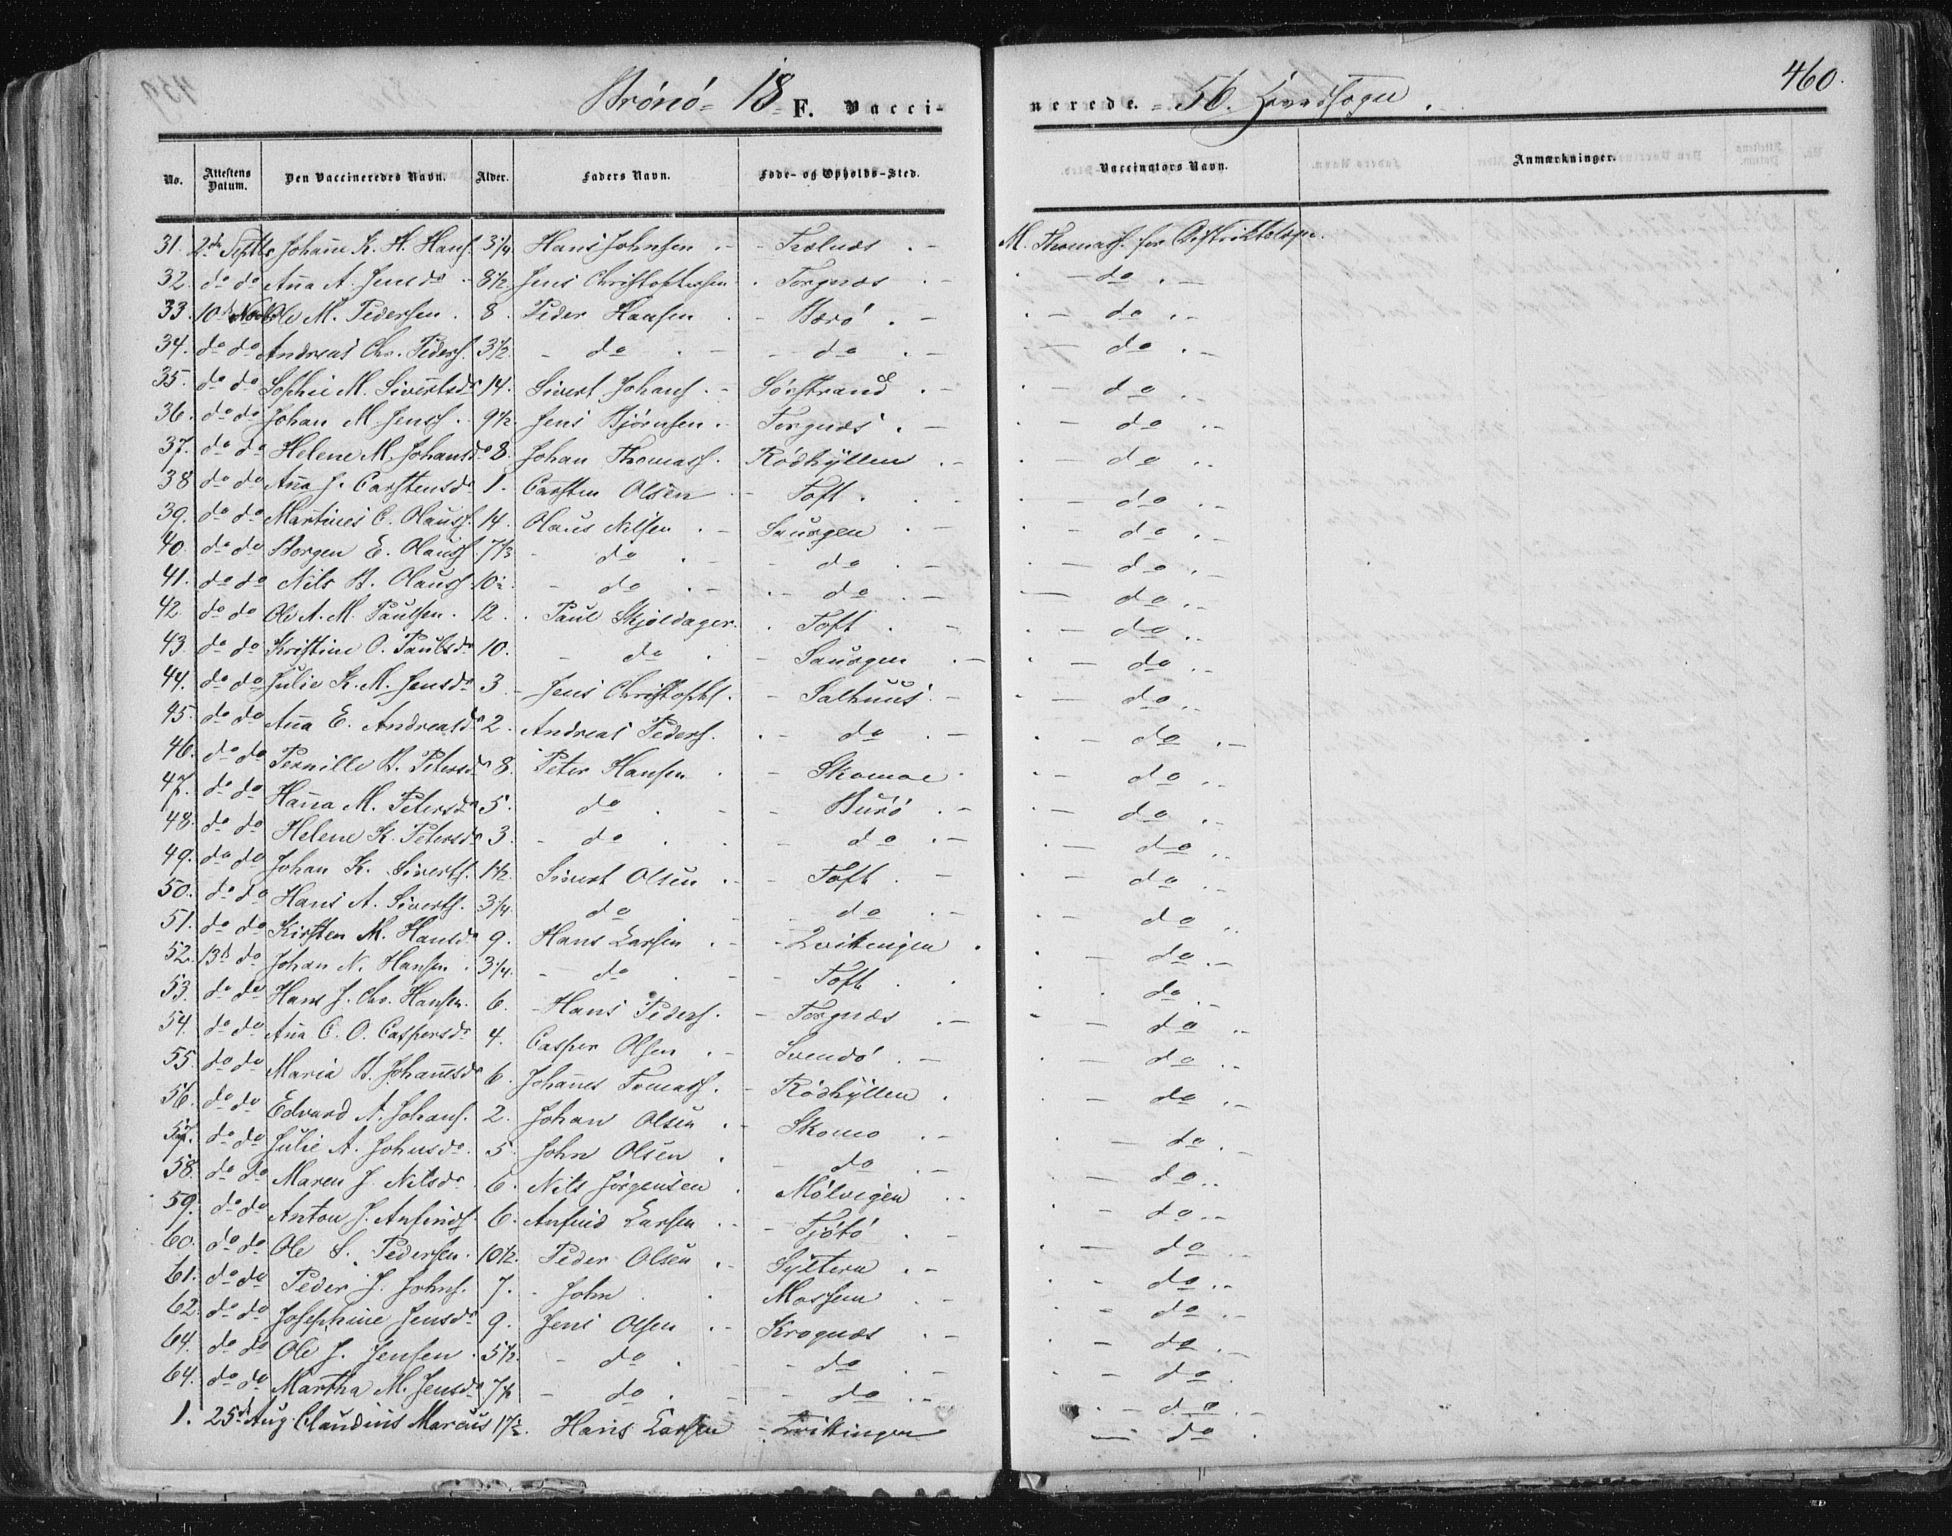 460.
Brönö- 18 F. Vacci-nerede. 56. Hovedsogn.
No. Attestens Datum. Den Vaccineredes Navn. Alder. Faders Navn. Føde- og Opholds-Sted. Vaccinators Navn. Anmærkninger.
31. 2d Septbr Johan K. H. Hans. 3/4 Hans Johnsen - Trælnæs - M. Thomass. for Distriktslæge.
32. do do Aña A. Jensdr 8 1/2. Jens Christophersen Torgnæs - do -
33. 10d Novbr Ole M. Pedersen. 8. Peder Hansen - Hærö. - do -
34. do do Andreas Chr. Peders. 3 1/2. - do - - do - - do -
35. do do Sophie M. Sivertsdr 14. Sivert Johans. Sörstrand - do -
36. do do Johan M Jenss. 9 1/2 Jens Björnsen. Torgnæs. - do -
37. do do Helene M. Johansdr 8. Johan Thomass. Rödhyllen - do -
38 do do Aña J. Carstensdr 1. Carsten Olsen - Toft. - do -
39. do do Martines C. Olauss. 14. Olaus Nilsen - Sausgen - do -
40. do do Borgen E. Olauss. 7 1/3 - do - - do - - do -
41. do do Nils B. Olauss. 10 - do - - do - - do -
42 do do Ole A. M. Paulsen. 12. Paul Skjeldager. Toft. - do -
43. do do Kristine O. Paulsdr 10. - do - Sausgen - do -
44. do do Julie K. M. Jensdr 3 - Jens Christophs. - Salhuus - do -
45. do do Aña E. Andreasdr 2. Andreas Peders. - do - - do -
46. do do Pernille B. Petersdr 8. Peter Hansen - Skomoe - do -
47. do do Haña M. Petersdr 5. do - Burö - do -
48. do do Helene K. Petersdr 3 - do - do - - do -
49. do do Johan K. Siverts. 1 1/2. Sivert Olsen - Toft - do -
50. do do Hans A. Siverts. 3/4. do - do - - do -
51. do do Kirsten M. Hansdr 9. Hans Larsen - Qvitingen. - do -
52. 13d do Johan N. Hansen. 3/4. - do - Toft. - do -
53. do do Hans J. Chr. Hansen. 6. Hans Peders. - Torgnæs - do -
54. do do Aña C. O. Caspersdr 4. Casper Olsen - Svendö - do -
55. do do Maria B. Johañesdr 6. Johañes Tomass. - Rödhyllen. - do -
56. do do Edvard A. Johans. 2. Johan Olsen - Skomo - do -
57. do do Julie A. Johnsdr. 5. John Olsen - do - - do -
58. do do Maren J. Nilsdr 6. Nils Jörgensen Mölvigen - do -
59. do do Anton J. Anfinds. 6. Anfind Larsen - Tjötö - do -
60. do do Ole S. Pedersen. 10 1/2. Peder Olsen Syltern - do -
61. do do Peder J. Johns. 7. - John Mosheim - do -
62. do do Josephine Jensdr 9. Jens Olsen - Krognæs - do -
64. do do Ole J. Jensen. 5 1/2. - do - - do - - do -
64. do do Martha M. Jensdr 7 - do - - do - - do -
1. 25d Aug. Claudius Marcus 1 Hans Larsen - Qvittingen - do